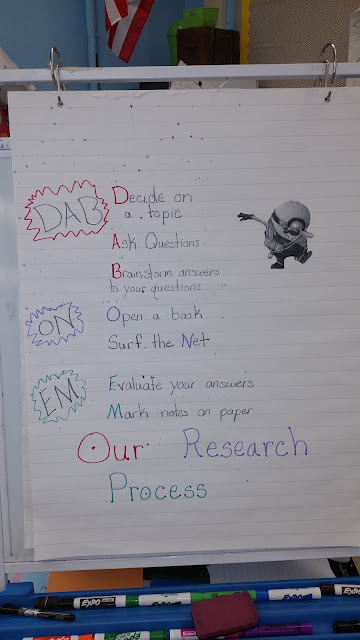 DAB
Decide on
a topic
Ask Questions
Brainstorm answers
to your questions
ON
Open a book
Surf the Net
EM
Evaluate your answers
Mark notes on paper
Our Research
Process
EXPO
EXPO
EXPO
EXPO